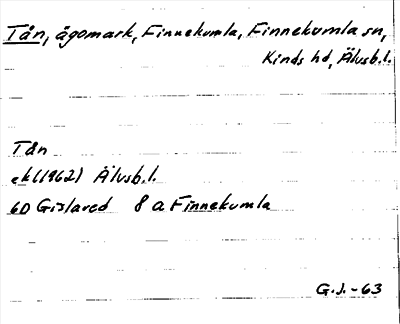 Tån, ägomark, Finnekumla, Finnekumla sn,
Kinds hd, Älvsb.l.
Tån
ek(1962) Älvsb.l.
6D Gislaved 8 a Finnekumla
G.J.-63